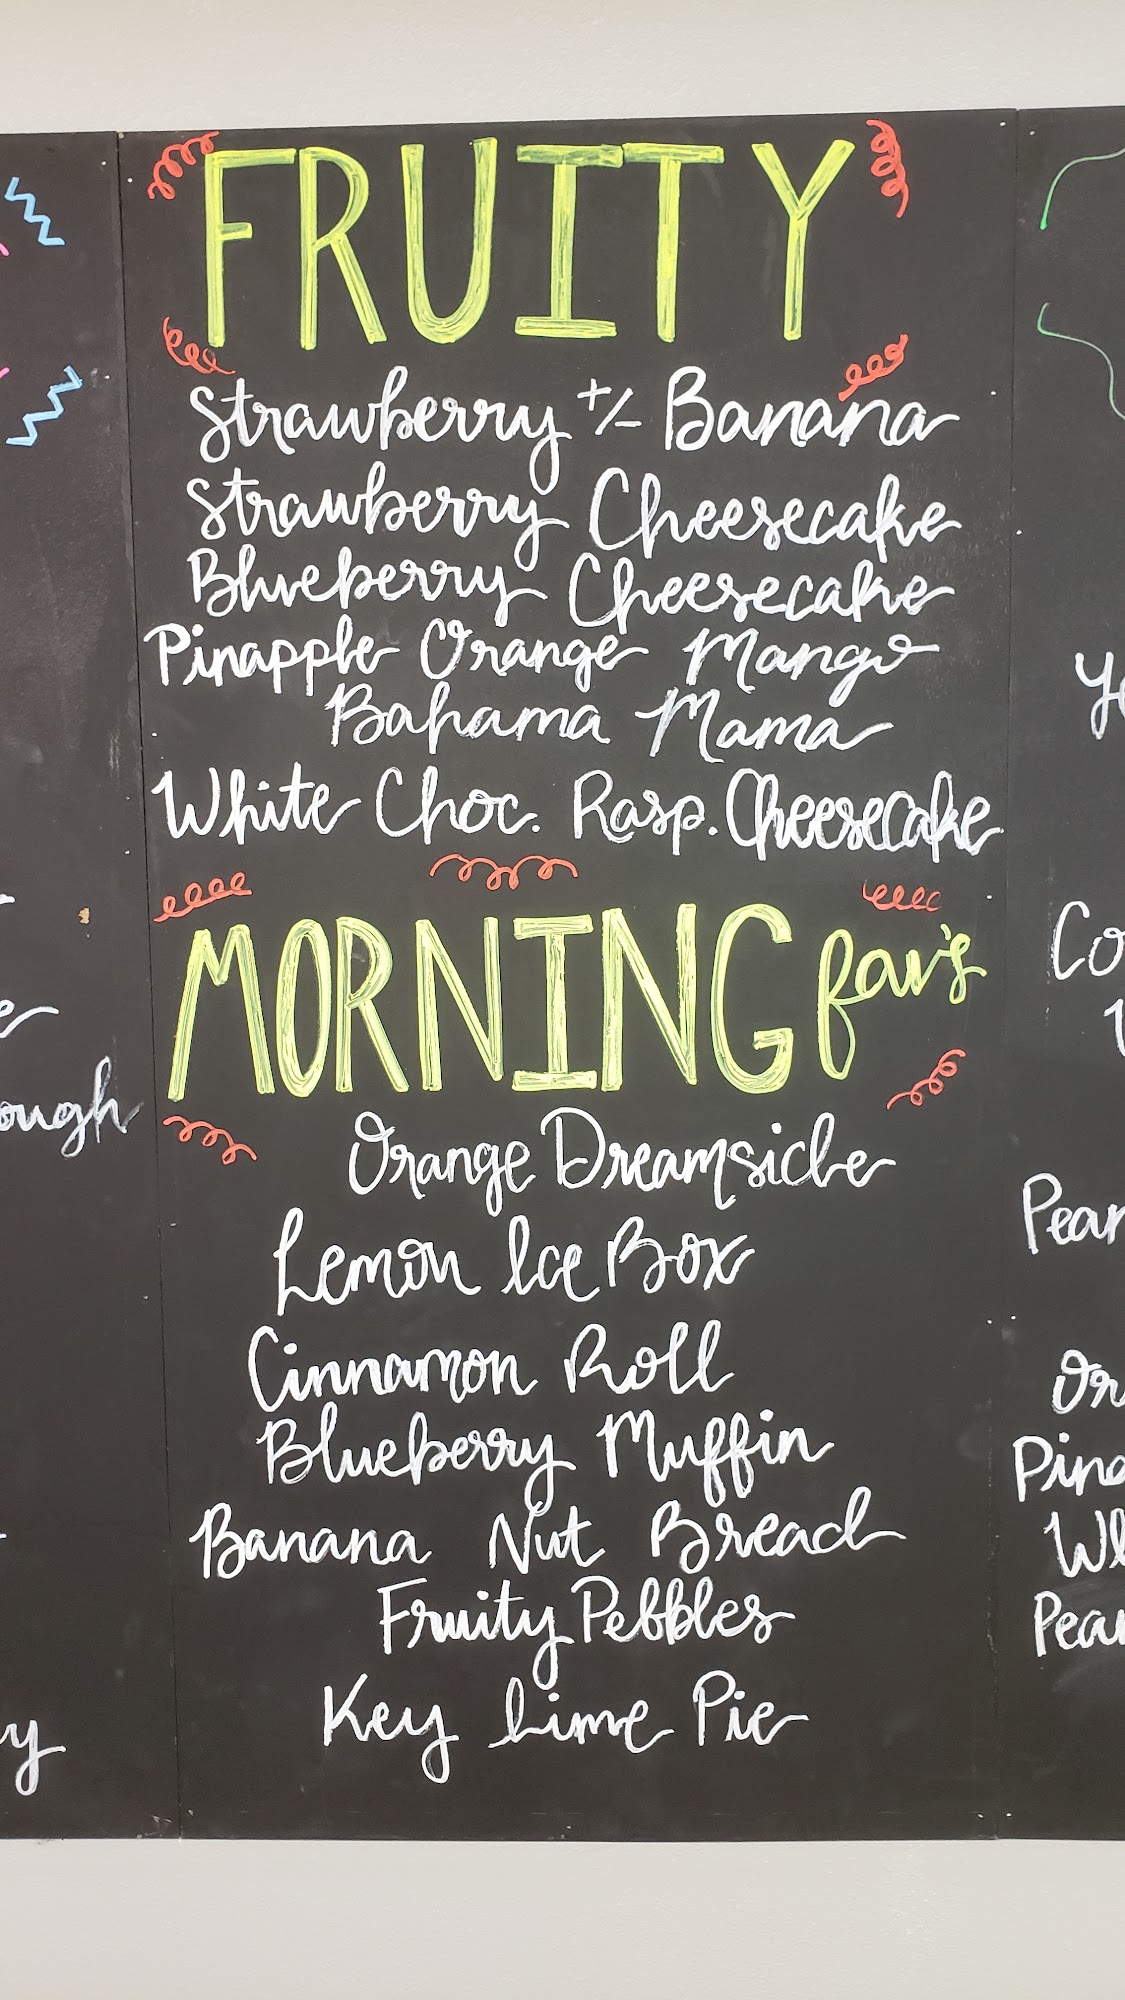 FRUITY
Strawberry +/- Banana
Strawberry Cheesecake
Blueberry Cheesecake
Pinapple Orange Mango
Bahama Mama
White Choc. Rasp. Cheesecake
MORNING fav's
Orange Dreamsicle
Lemon Ice Box
Cinnamon Roll
Blueberry Muffin
Banana Nut Bread
Fruity Pebbles
Key Lime Pie
ough
y
Co
Pean
Or
Pina
Wh
Pean